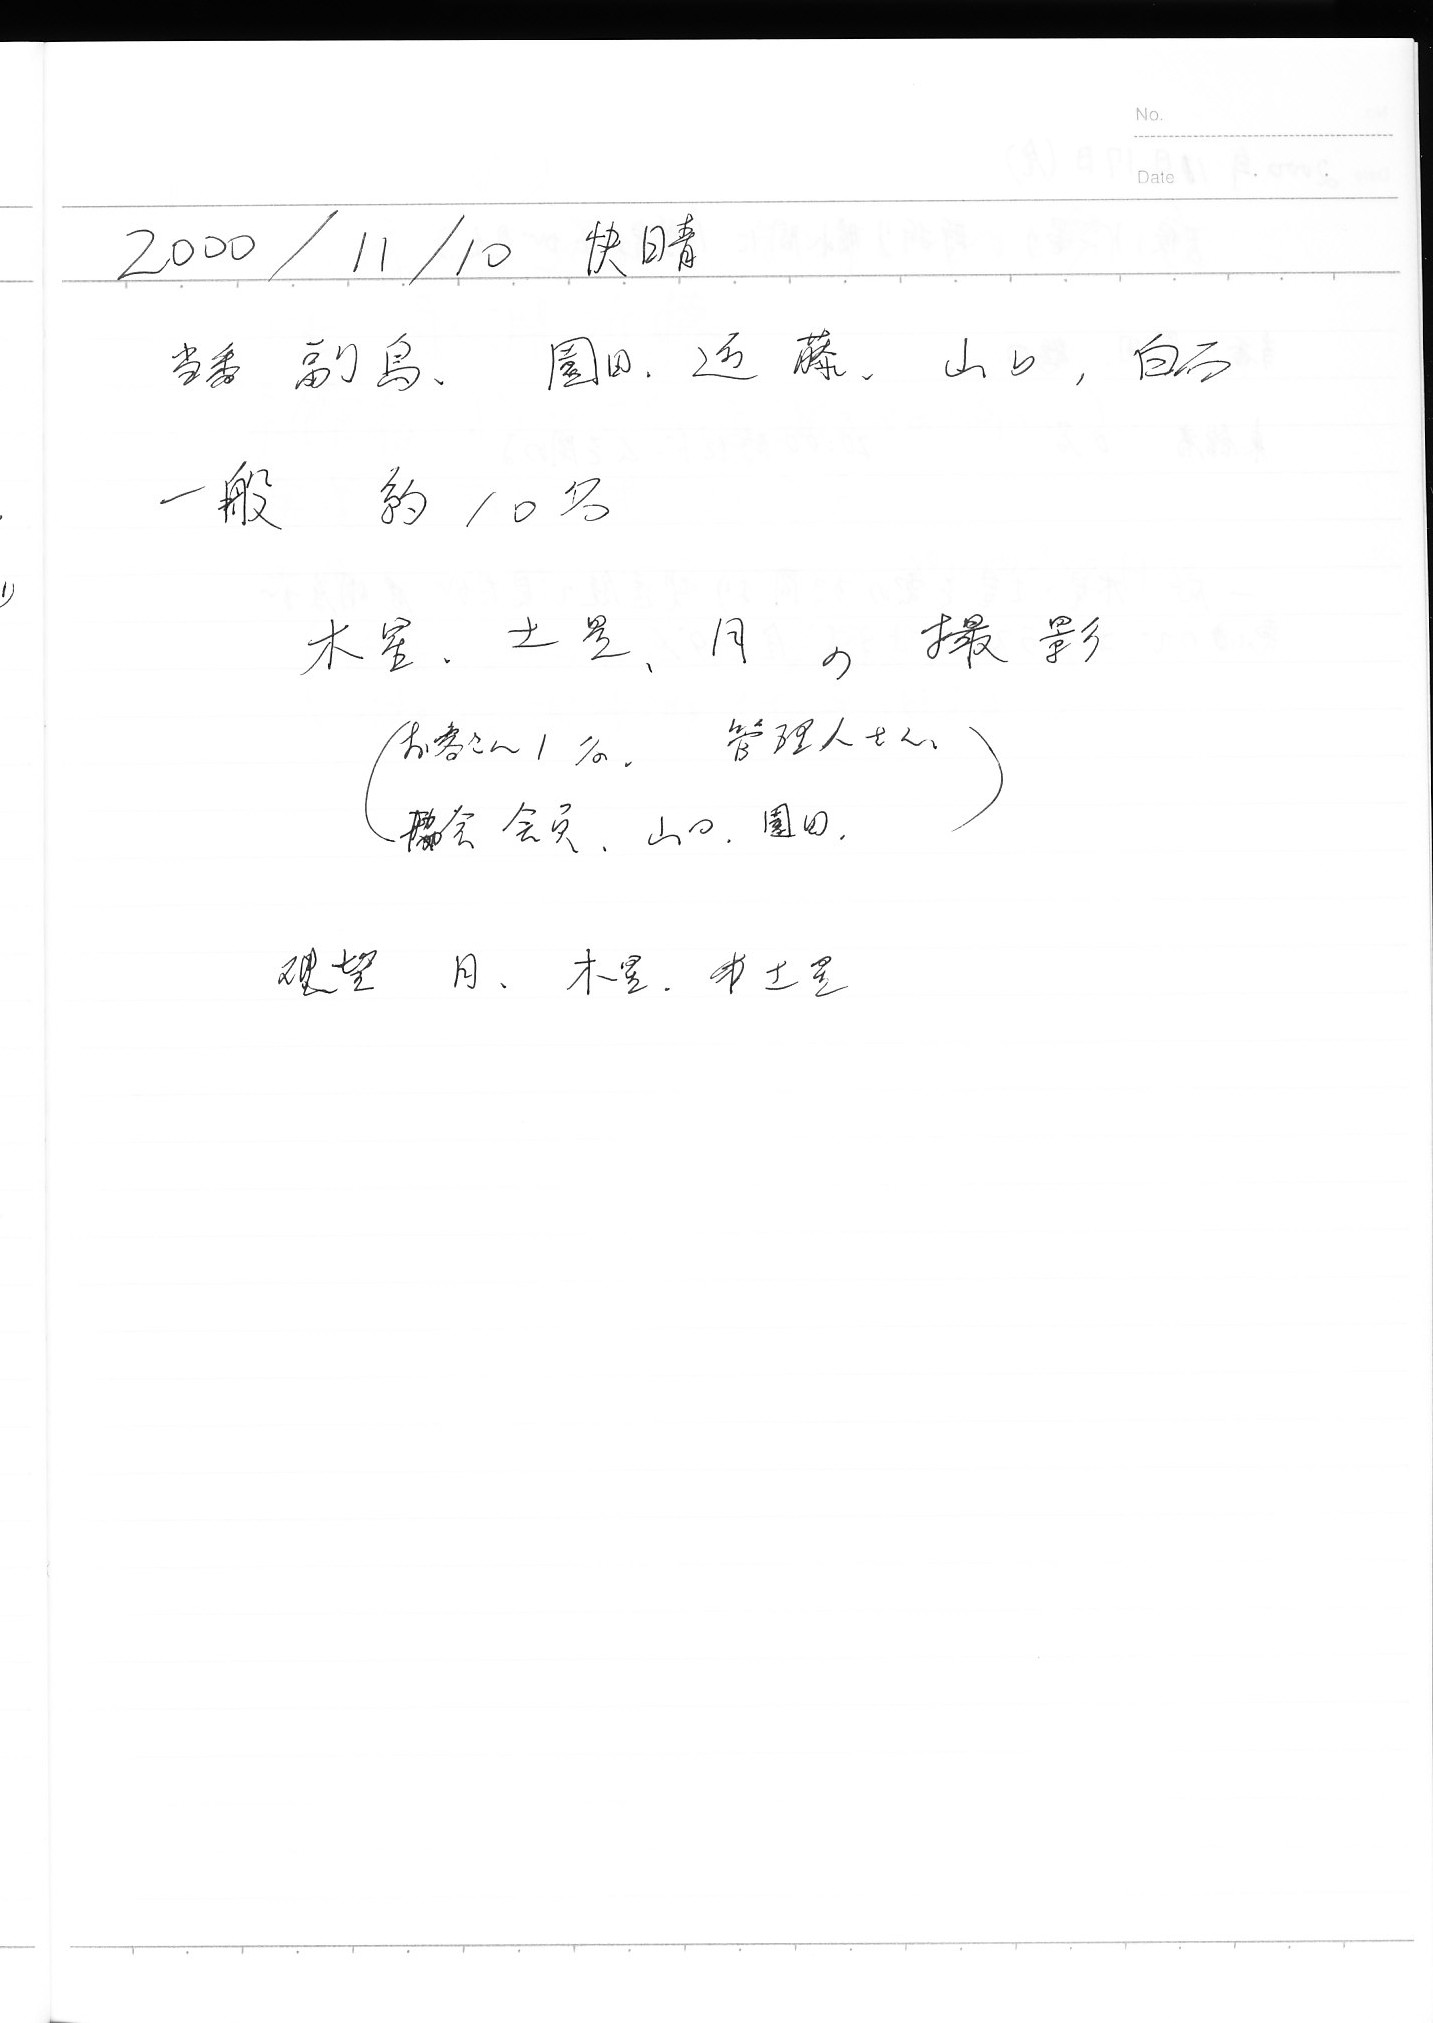 No.
Date
2000/11/10 快晴
当番 副島、園田、近藤、山口、白石
一般 約10名
木星、土星、月の撮影
(お客さん1名、管理人さん、
協会会員、山口、園田、)
望 月、木星、土星